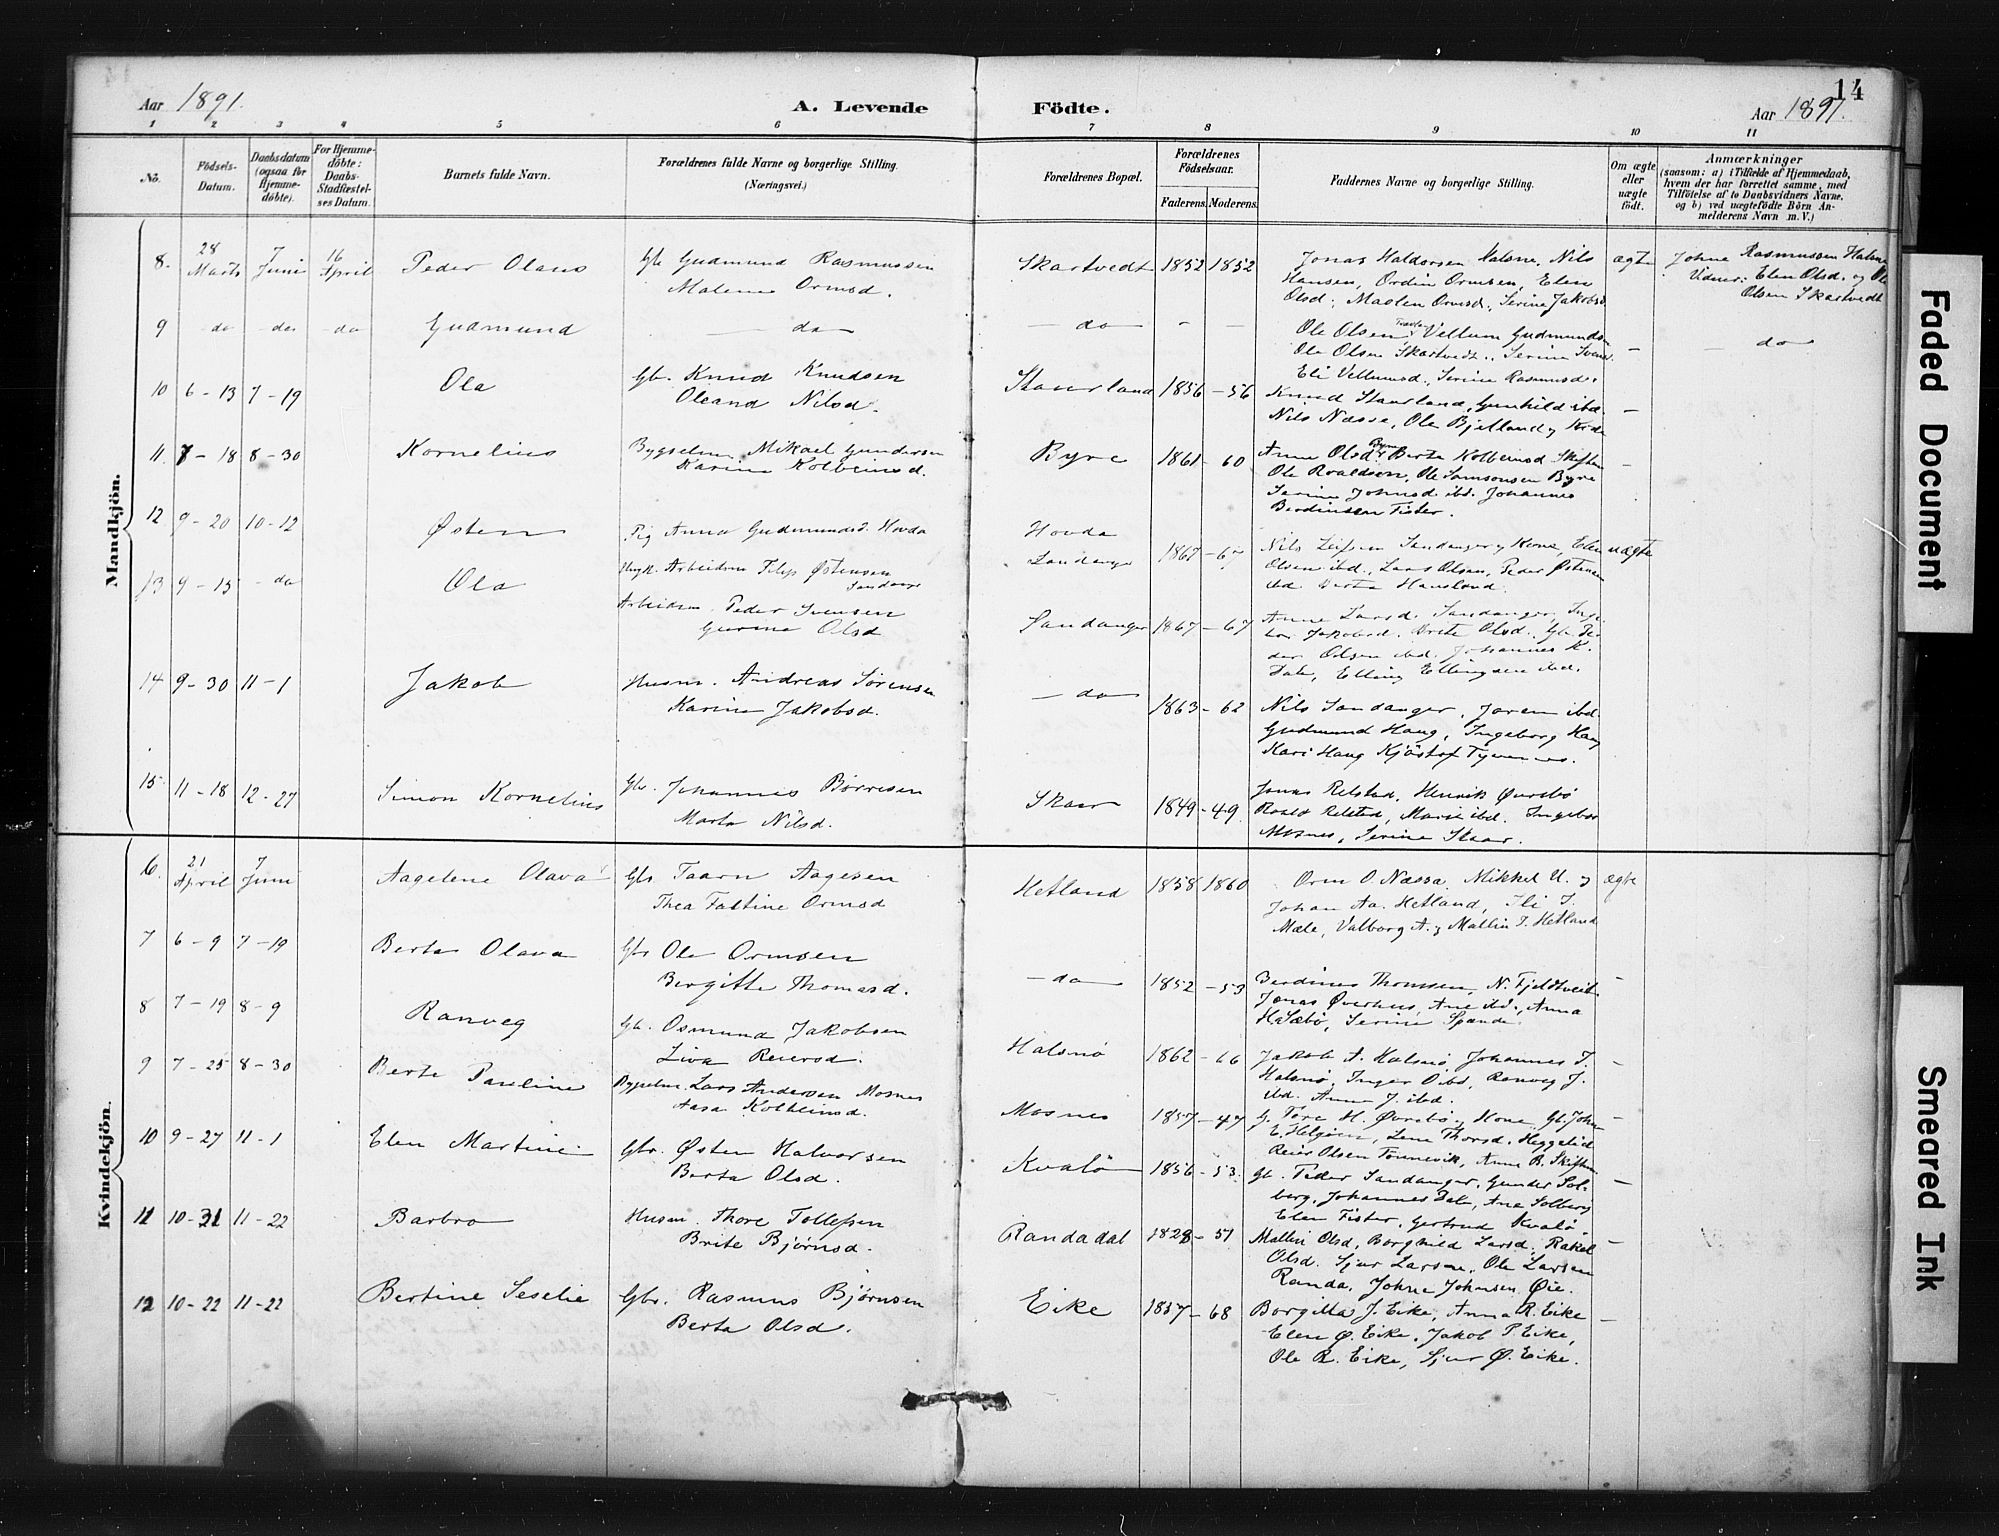 14
Aar 1891.
A. Levende Födte.
Aar 1891.
1 2 3 4 5 6 7 8 9 10 11
No.
Födsels-Datum.
Daabsdatum (ogsaa for Hjemmedöbte).
For Hjemmedöbte: Daabs-Stadfæstelses Datum.
Barnets fulde Navn.
Forældrenes fulde Navne og borgerlige Stilling.
(Næringsvei.)
Forældrenes Bopæl.
Forældrenes Födselsaar.
Faderens. Moderens.
Faddernes Navne og borgerlige Stilling.
Om ægte eller uægte födt.
Anmærkninger
(saasom: a) i Tilfælde af Hjemmedaab,
hvem der har forrettet samme, med
Tilföielse af to Daabsvidners Navne,
og b) ved uægtefödte Börn An-
melderens Navn m. V.)
Mandkjön.
8. 28 Marts 7 Juni 16 April Peder Olaus Gb Gudmund Rasmussen
Malene Ormsd. Skartvedt 1852 1852 Jonas Haldorsen Halsne, Nils
Hansen, Ordin Ormsen, Elen
Olsd., Maslen Ormsd., Serine Jakobsd. ægte Johne Rasmussen Halsne
Vidner: Elen Olsd. og Ole
Olsen Skartvedt
9 - do - do - do Gudmund - do - - do - - - Ole Olsen Vellum Gudmunds
Ole Olsen Skartvedt, Serine
Eli Vellumsd, Serine Rasmusd. - - do
10 6-13 7-19 Ola Gb. Knud Knudsen
Oleand Nilsd. Staurland 1856 - 56 Knud Staurland, Gunhild ibd.
Nils Næsse, Ole Bjelland -
11. 7-18 8-30 Kornelius Bygselm. Mikael Gundersen
Karine Kolbeinsd. Byre 1861 - 60 Anne Olsd Byre Berta Kolbeinsd Skiften
Ole Roaldsen, Ole Samsonsen Byre
Serine Johnsd ibd. Johannes
Berdinesen Fister. -
12 9-20 10-12 Østen Pig Anna Gudmundsd. Hovda
Ungk. Arbeidsm Filip Østensen
Sandange Hovda
Sandange 1867 - 67 Nils Leifsen Sandanger y Kone, Elen
Olsen ibd., Lars Olsen, Peder Østensen
ibd. Berta Hausland. uægte
13 9-15 - do Ola Arbeidsm. Peder Svensen
Gurine Olsd Sandanger 1867 - 67 Anne Larsd. Sandanger, Inge-
bor Jakobsd. Brite Olsd. Gb. Pe-
der Olsen ibd. Johannes K.
Dale, Elling Ellingsen ibd.
14 9-30 11-1 Jakob Husm. Andreas Sørensen
Karine Jakobsd. - do - 1863 - 62 Nils Sandanger, Joren ibd.
Gudmund Haug, Ingeborg Haug
Kari Haug Kjøstof Tyvennes.
15 11-18 12-27 Simon Kornelius Gbr. Johannes Børresen
Marta Nilsd. Skaar 1849 - 49 Jonas Relstad, Henrik Øvrebø
Roald Relstad, Marie ibd. Ingebor
Mosnes, Serine Skaar.
Kvindekjön.
6. 21 April 7 Juni Aagelene Olava Gbr Taarn Aagesen
Thea Faltine Ormsd Hetland 1858 1860 Orm O. Næssa, Mikkel U. y
Johan Aa. Hetland, Eli T.
Mæle, Valborg A. y Mallin T. Hetland ægte
7 6-9 7-19 Berta Olava Gbr Ole Ormsen
Bergitte Thomasd. - do - 1852 - 53 Berdines Thomsen, N. Fjeldtveit
Jonas Øverhus, Ane ibd., Anna
H. Sæbø, Serine Spande. -
8 7-19 8-9 Ranveg Gb. Osmund Jakobsen
Liva Reiersd. Halsnø 1862 - 66 Jakob A. Halsnø, Johannes T.
Halsnø, Inger O. ibd, Ranveg J.
ibd. Anne J. ibd. -
9 7-25 8-30 Berte Pauline Bygselm. Lars Andersen Mosnes
Aasa Kolbeinsd. Mosnes 1857 - 47 G. Tore H. Øvrebø y Kone, Gb. John
E. Helgøen, Lene Thorsd. Heggelid
Reier Olsen Tønnevik, Anne B. Skiften -
10 9-27 11-1 Elen Martine Gbr. Østen Halvorsen
Berta Olsd. Kvalø 1856 - 53. Gb. Peder Sandanger, Gunder Sol-
berg, Johannes Dale, Ane Solberg
Elen Fister, Gertrud Kvalø -
11 10-21 11-22 Barbro Husm. Thore Tollefsen
Brite Bjørnsd. Randadal 1828 - 51 Mallin Olsd, Borghild Larsd, Rakel
Olsd. Sjur Larsen, Ole Larsen
Randa, Johne Johnsen Øie. -
12 10-22 11-22 Bertine Seselie Gbr. Rasmus Bjørnsen
Berta Olsd. Eike 1857 - 68 Borgilla J. Eike, Anna R. Eike
Elen Ø. Eike, Jakob P. Eike,
Ole R. Eike, Sjur Ø. Eike. -
Faded Document
Smeared Ink